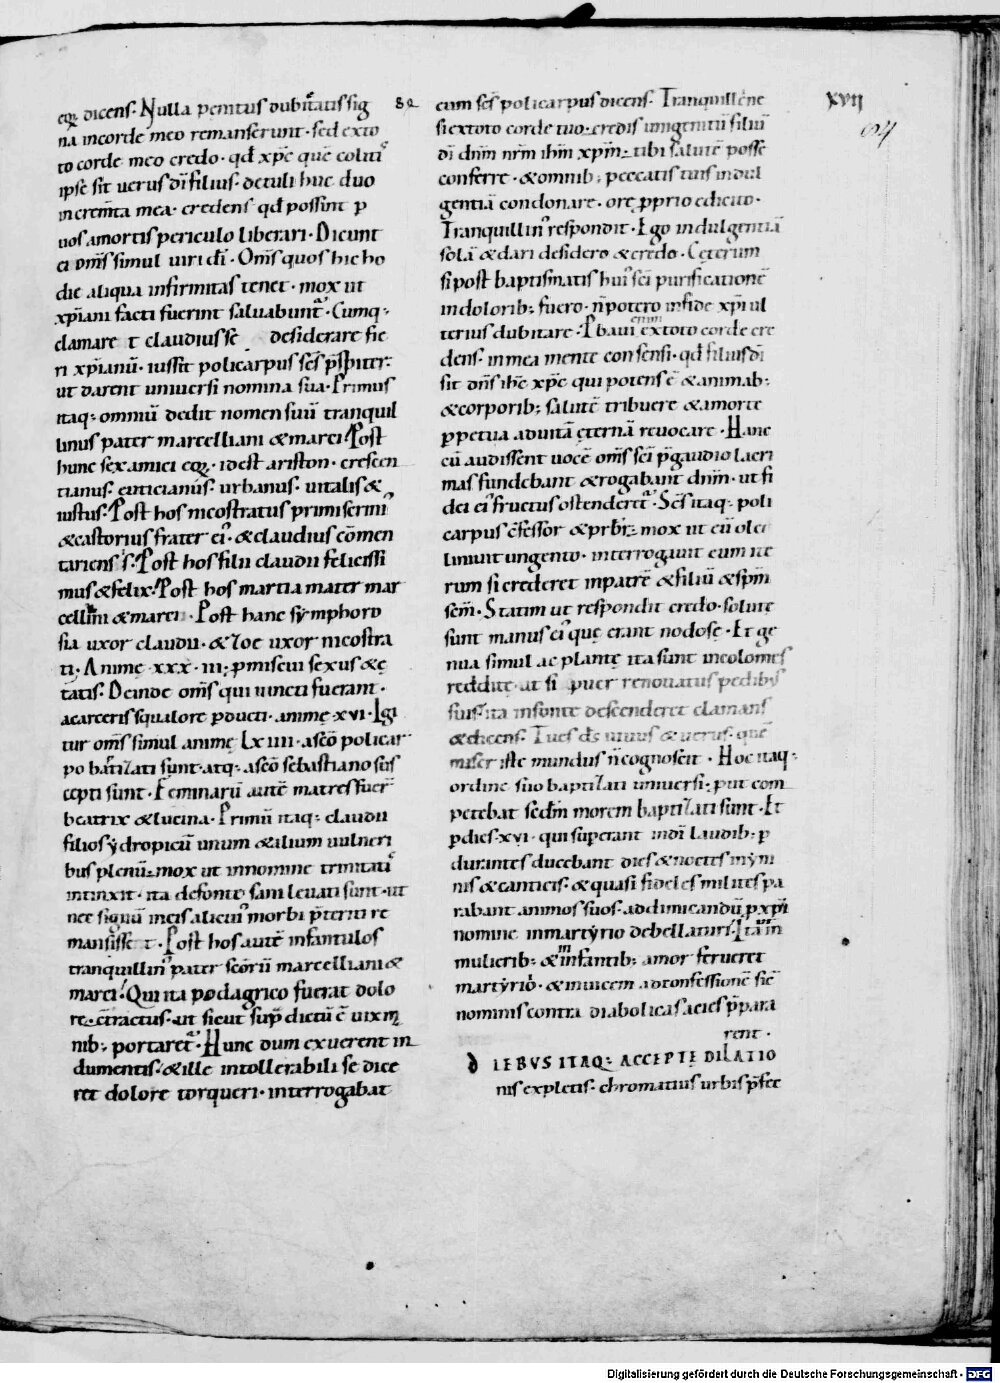 eꝗ dicens. Nulla penitus dubitatis sig
na in corde meo remanserunt. sed exto
to corde meo credo. qđ xp̄c quē coliti᾽
ipse sit uerus dī filius. detuli huc duo
increm̄ta mea. credens qđ possint p
uos amortis periculo liberari. Dicunt
ei om̄s simul uiri dī. Om̄s quos hic ho
die aliqua infirmitas tenet. mox ut
xp̄iani facti fuerint saluabunt᾽. Cumq;
clamaret claudius se desiderare fie
ri xp̄ianū. iussit policarpus sc̄s p̄sbiter.
ut darent uniuersi nomina sua. Primus
itaq; omniū dedit nomen suū tranquil
linus pater marcelliani & marci. Post
hunc sex amici eꝗ. idest ariston. crescen
tianus. euticianus. urbanus. uitalis &
iustus. Post hos nicostratus primiserini᾽
& castorius frater ei᾽. & claudius cōmen
tariensis. Post hos filii claudii felicissi
mus & felix. Post hos martia mater mar
celliani & marci. Post hanc symphoro
sia uxor claudii. & zoe uxor nicostra
ti. Animę .xxx.iii. p̄miscui sexus & ę
tatis. Deinde om̄s qui uincti fuerant.
acarceris squalore pducti. animę .xvi. Igi
tur om̄s simul animę Lxiiii. asc̄o policar
po baptizati sunt. atq; asc̄o sebastiano sus
cepti sunt. Feminarū autē matres fuer̄
beatrix & lucina. Primū itaq; claudii
filios ydropicū unum & alium uulneri
bus plenū. mox ut innomine trinitati᾽
intinxit. ita defonte sani leuati sunt. ut
nec signū ineis alicui᾽ morbi p̄teriti re
mansisset. Post hos autē infantulos
tranquillin᾽ pater sc̄orū marcelliani &
marci. Qui ita podagrico fuerat dolo
re c̄tractus. ut sicut sup̄ dictū ē uix m
nib; portaret᾽. Hunc dum exuerent in
dumentis. & ille intollerabili se dice
ret dolore torqueri. interrogabat
eum sc̄s policarpus dicens. Tranquilline
si extoto corde tuo. credis unigenitū filiū
dī dn̄m nr̄m ih̄m xp̄m. tibi salutē posse
conferre. & omnib; peccatis tuis indul
gentiā condonare. ore pprio edicito.
Tranquillin᾽ respondit. Ego indulgentiā
solā & dari desidero & credo. Cęterum
si post baptismatis hui᾽ sc̄i purificationē
indolorib; fuero. n̄ potero infide xp̄i ul
terius dubitare. Pbaui enim extoto corde cre
dens. inmea mente consensi. qđ filius dī
sit dn̄s ih̄c xp̄c qui potens ē & animab;
& corporib; salutē tribuere & amorte
ppetua aduitā ęternā reuocare. Hanc
cū audissent uocē om̄s sc̄i p̄gaudio lacri
mas fundebant & rogabant dn̄m. ut fi
dei ei᾽ fructus ostenderet᾽. Sc̄s itaq; poli
carpus c̄fessor & prbr. mox ut eū olei
liniuit ungento. interrogauit eum ite
rum si crederet inpatrē & filiū & sp̄m
sc̄m. Statim ut respondit credo. solutę
sunt manus ei᾽ quę erant nodosę. Et ge
nua simul ac plantę ita sunt incolomes
redditę. ut si puer renouatus pedibus
suis. ita insonte descenderet clamans
& dicens. Tu es ds̄ uiuus & uerus. quē
miser iste mundus n̄ cognoscit. Hoc itaq;
ordine suo baptizati uniuersi. put com
petebat sedm̄ morem baptizati sunt. Et
pdies .xvi. qui supant indī laudib; p
durantes ducebant dies & noctes inym
nis & canticis. & quasi fideles milites pa
rabant animos suos. addimicandū. p xp̄i
nomine in martyrio debellaturi. Itam̄ in
mulierib; & in infantib; amor ferueret
martyrio. & inuicem adconfessionē sic
nominis contra diabolicas acies p̄para
rent.
DIEBVS ITAQ; ACCEPTĘ DILATIO
nis expletis. chromatius urbis p̄fec
XVII
64